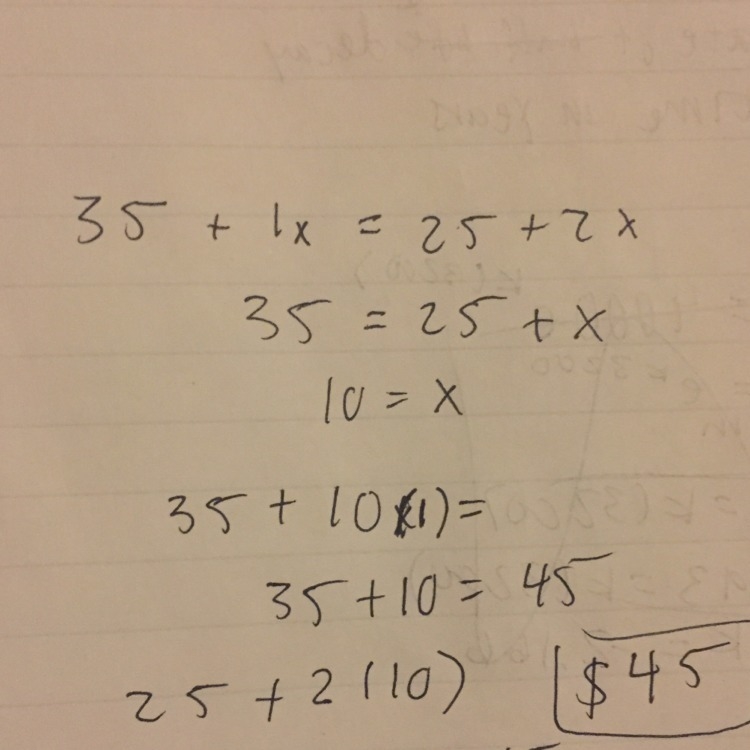 35 + 1x = 25 + 2x
35 = 25 + x
10 = x
35 + 10(1) =
35 + 10 = 45
25 + 2(10)
$45